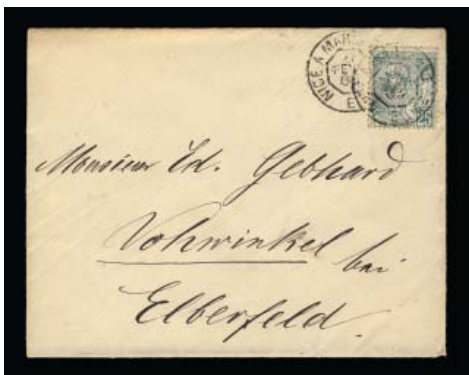 NICE A MAR
E
25
Monsieur Ed. Gebhard
Vohwinkel bei
Elberfeld.